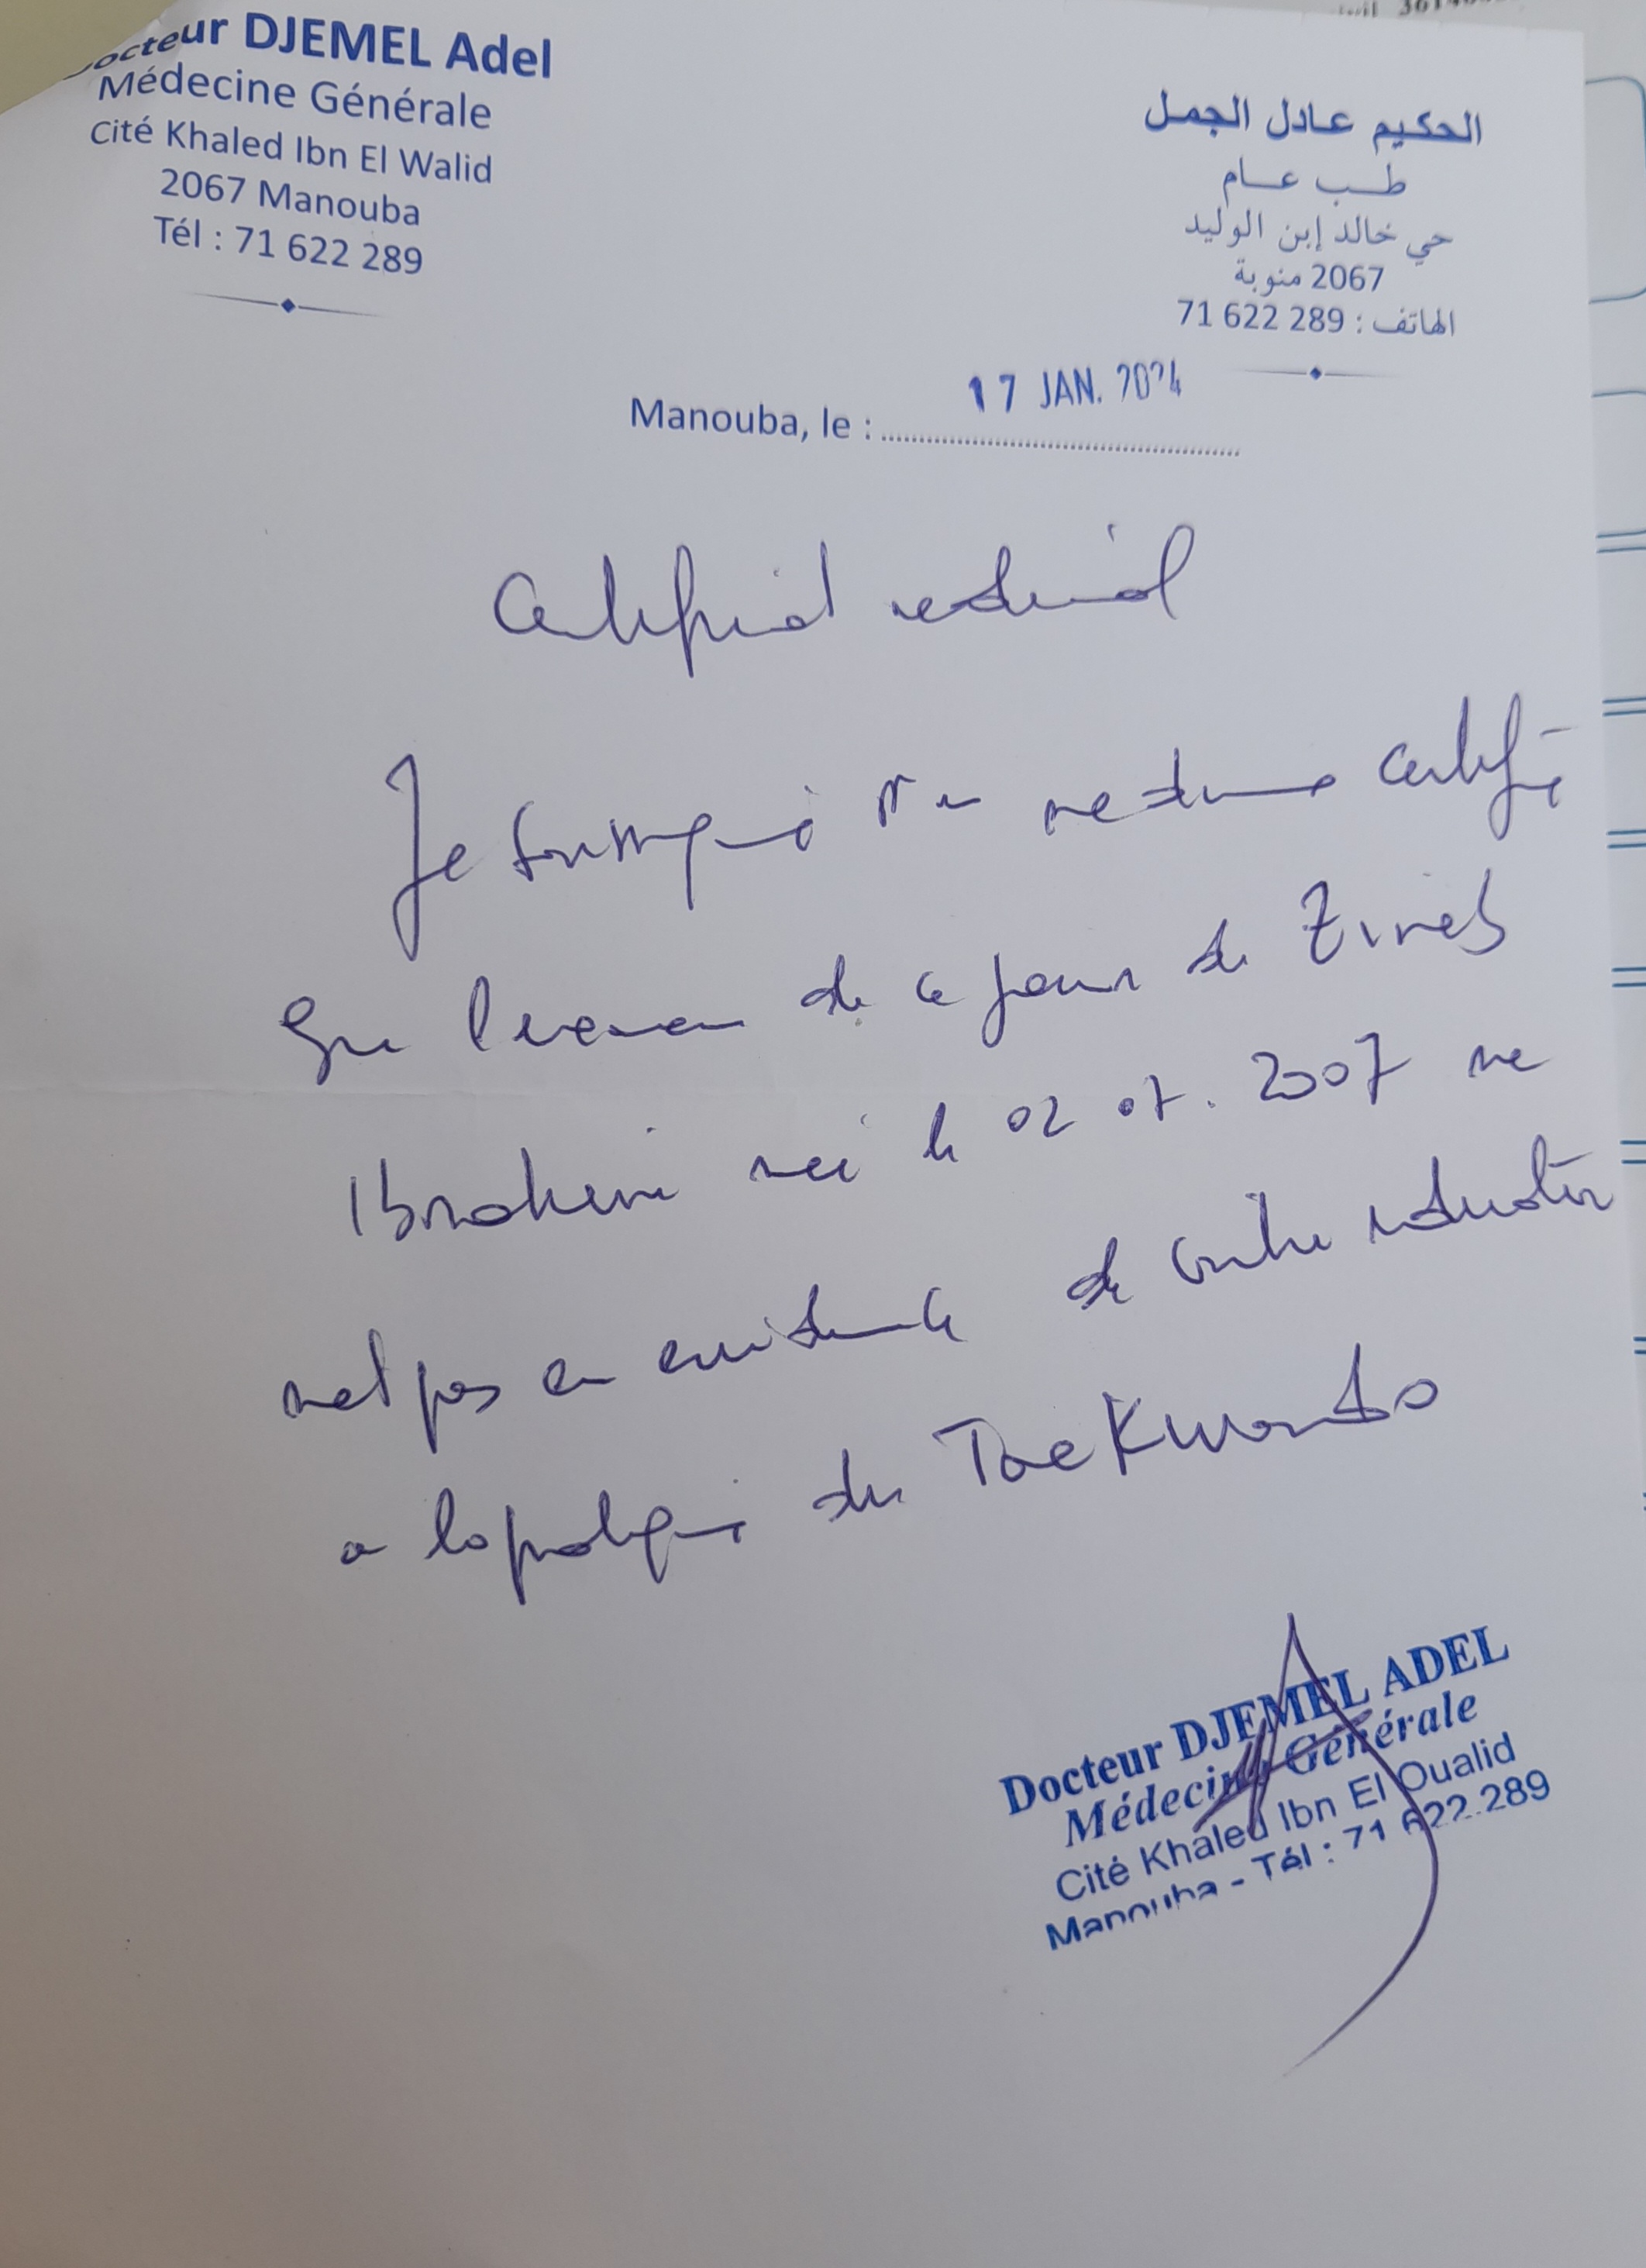 Docteur DJEMEL Adel
Médecine Générale
Cité Khaled Ibn El Walid
2067 Manouba
Tél : 71 622 289
الحكيم عادل الجمل
طب عام
حي خالد إبن الوليد
2067 منوبة
الهاتف : 289 622 71
Manouba, le : 17 JAN. 2024
Certificat medical
Je soussigné en medecine certifie
Que l'examen de ce jour de Zineb
Ibrahim né le 02 07. 2007 ne
met pas en evidence de contre indication
a la pratique du TaeKwondo
Docteur DJEMEL ADEL
Médecine Générale
Cité Khaled Ibn El Oualid
Manouba - Tél : 71 622.289